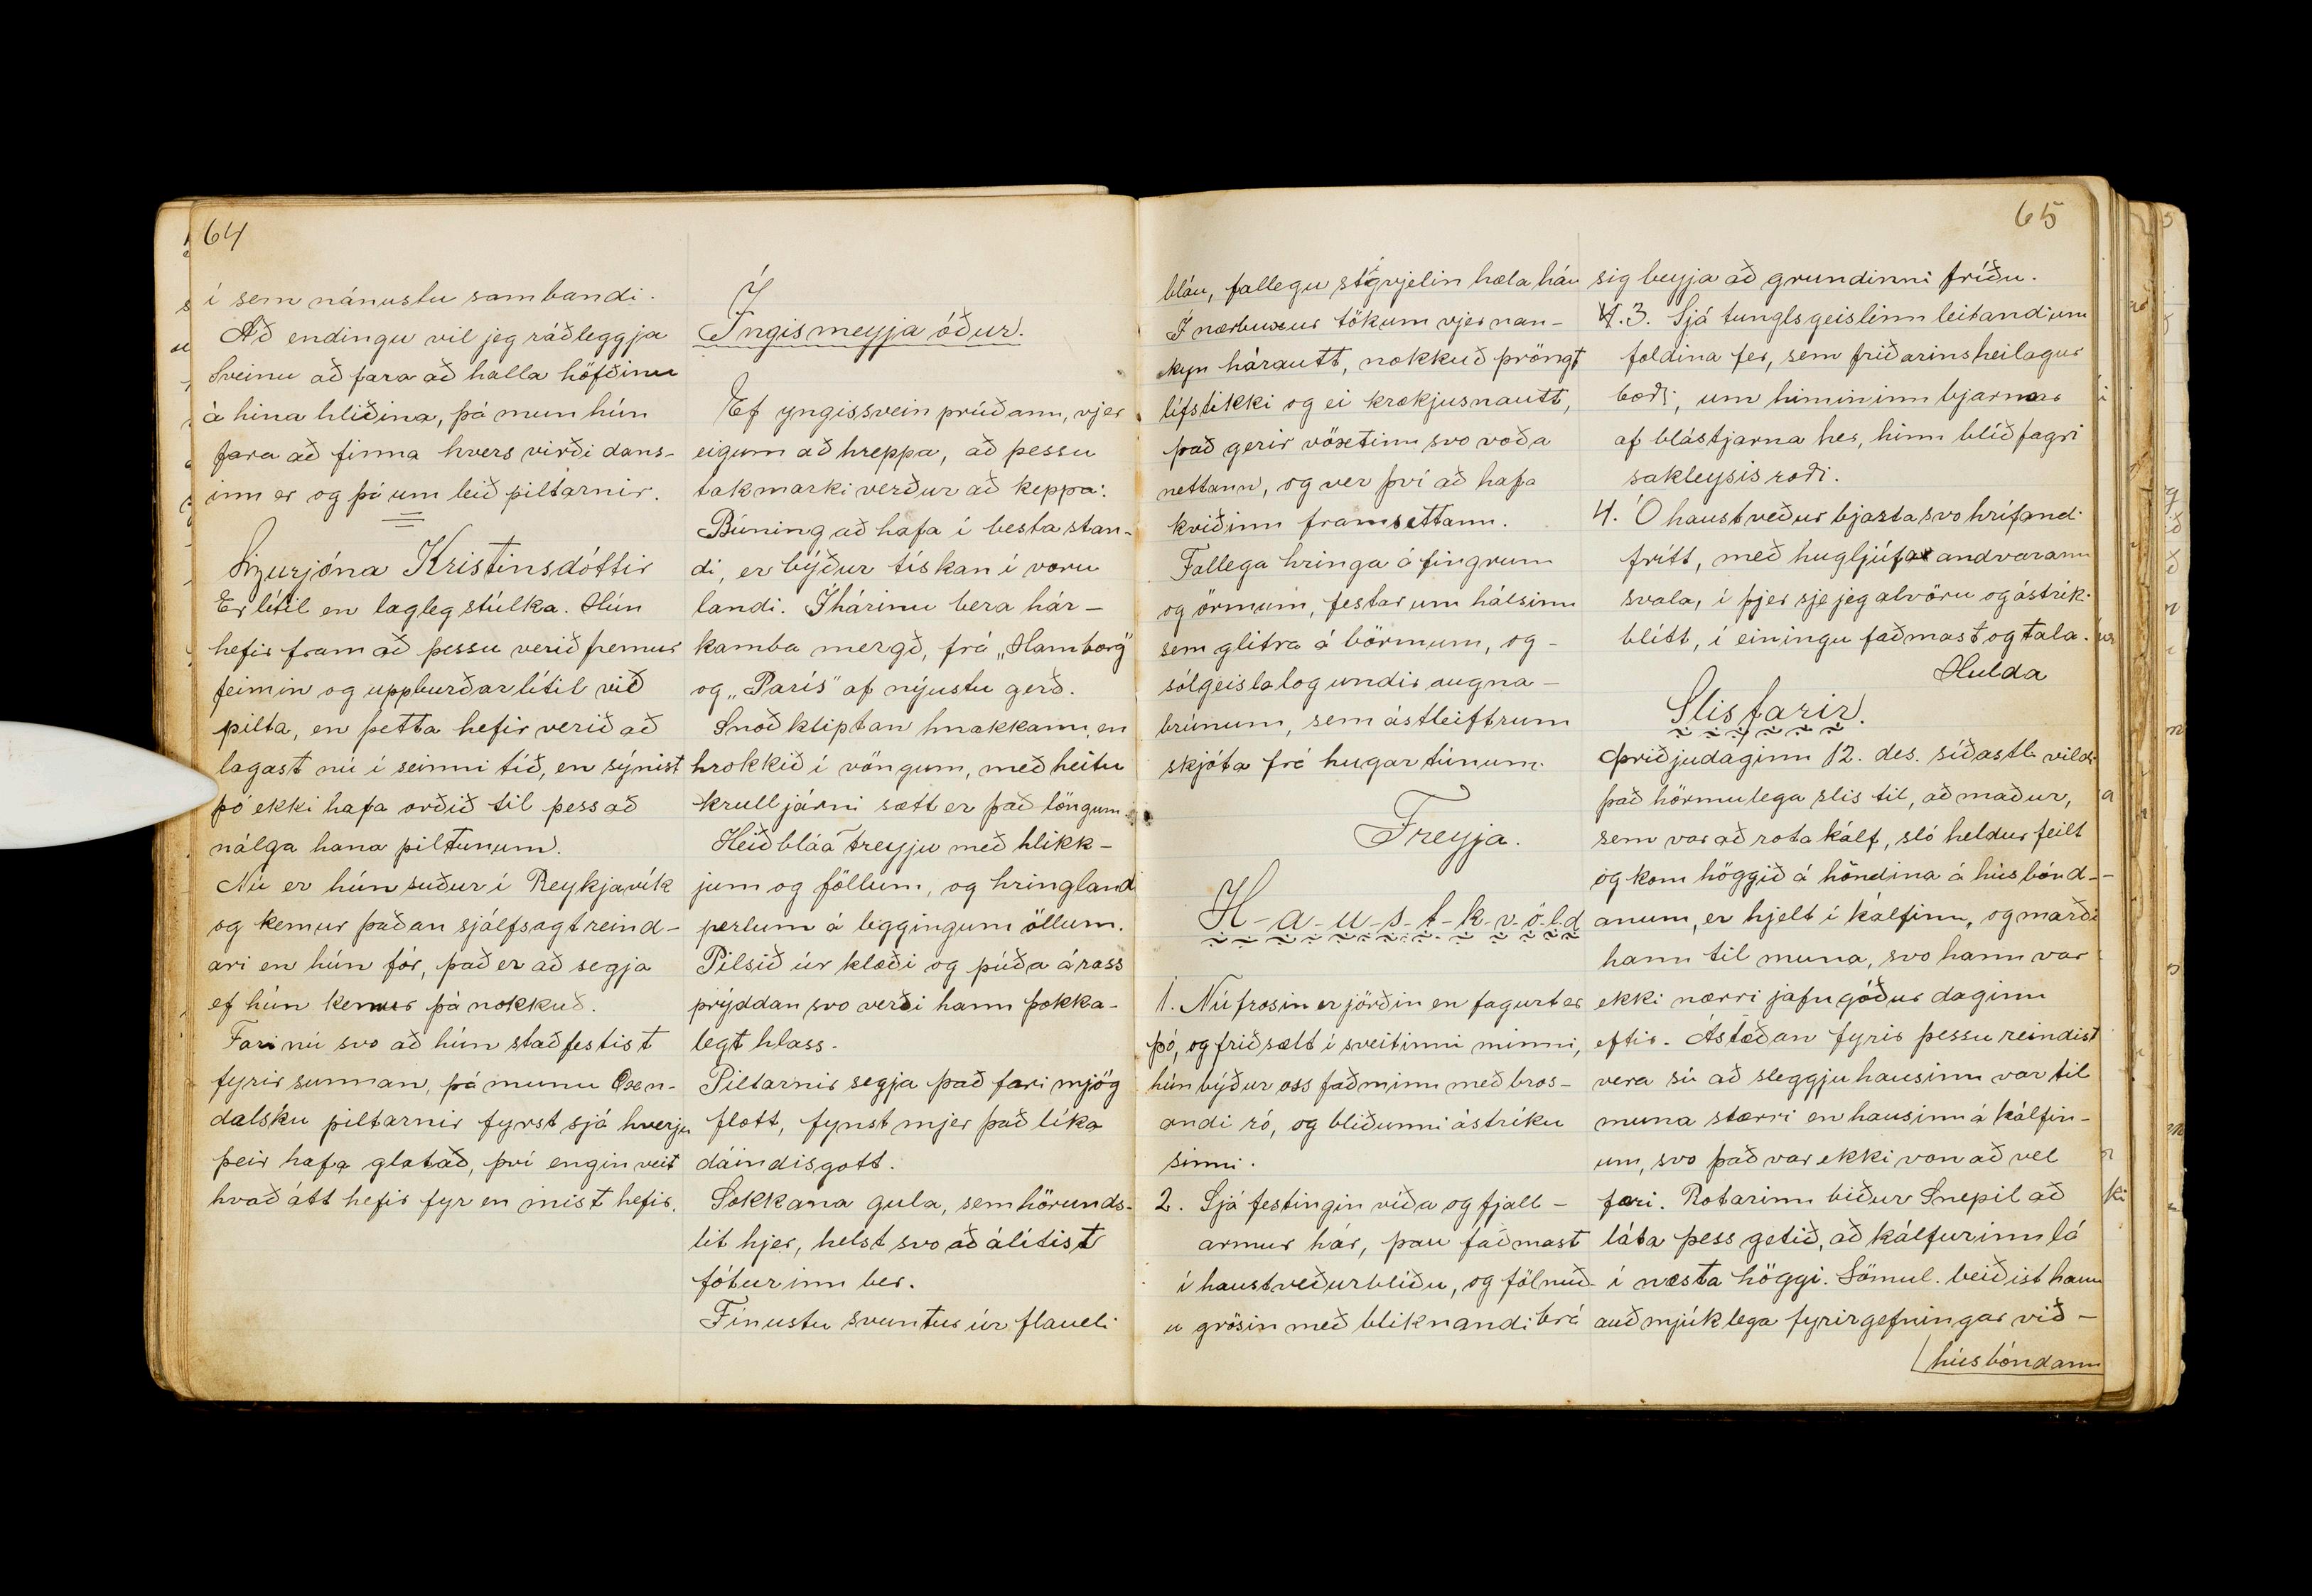 64
í sem nánustu sambandi.
Að endingu vil jeg ráðleggja
Sveinu að fara að halla höfðinu
á hina hliðina, þá mun hún
fara að finna hvers virði dans-
inn er og þá um leið piltarnir.
Sigurjóna Kristinsdóttir
Er lítil en lagleg stúlka. Hún
hefir fram að þessu verið fremur
feimin og uppburðarlítil við
pilta, en þetta hefir verið að
lagast nú í seinni tíð, en sýnist
þó ekki hafa orðið til þess að
nálga hana piltunum.
Nú er hún suður í Reykjavík
og kemur þaðan sjálfsagt reind-
ari en hún fór, það er að segja
ef hún kemur þá nokkuð.
Fari nú svo að hún staðfestist
fyrir sunnan, þá munu Öxn-
dælsku piltarnir fyrst sjá hverju
þeir hafa glatað, því engin veit
hvað átt hefir fyr en mist hefir.
Íngismeyja óður.
Ef yngissvein prúðann, vjer
eigum að hreppa, að þessu
takmarki verður að keppa:
Búning að hafa í besta stan-
di, er býður tískan í voru
landi. Í hárinu bera hár-
kamba mergð, frá „Hamborg"
og „París" af nýustu gerð.
Snoðkliptan hnakkann, en
hrokkið í vöngum, með heitu
krulljárni sætt er það löngum.
Heiðbláa treyju með hlikk-
jum og föllum, og hringland
perlum á leggingum öllum.
Pilsið úr klæði og púða á rass
prýddan svo verði hann þokka-
legt hlass.
Piltarnir segja það fari mjög
flott, fynst mjer það líka
dáindisgott.
Sokkana gula, sem hörunds-
lit hjer, helst svo að álítist
fóturinn ber.
Fínustu svuntur úr flaueli
65
bláu, fallegu stígvjelin hæla háu
Í nærbuxur tökum vjer nan-
kyn hárautt, nokkuð þröngt
lífstikki og ei krækjusnautt,
það gerir vöxtinn svo voða
nettann, og ver því að hafa
kviðinn framsettann.
Fallega hringa á fingrum
og örmum, festar um hálsinn
sem glitra á börmum, og-
sólgeislalog undir augna-
brúnum, sem ástleiftrum
skjóta frá hugartúnum.
Freyja.
H-a-u-s-t-k-v-ö-l-d
1. Nú frosin er jörðin en fagurt er
þó, og friðsælt í sveitinni minni,
hún býður oss faðminn með bros-
andi ró, og blíðunni ástríku
sinni.
2. Sjá festingin víða og fjall-
armur hár, þau faðmast
í haustveðurblíðu, og fölnuð
u grösin með bliknandi brá
sig beyja að grundinni fríðu.
3. Sjá tunglsgeislinn leitandi um
foldina fer, sem friðarins heilagur
boði, um himininn bjarmar
af blástjarna her, hinn blíðfagri
sakleysis roði.
4. Ó haustveður bjarta svo hrífandi
frítt, með hugljúfa andvarann
svala, í þjer sje jeg alvöru og ástrík-
blítt, í einingu faðmast og tala.
Hulda
Slisfarir.
Þriðjudaginn 12. des. síðastl. vildi
það hörmulega slis til, að maður,
sem var að rota kálf, sló heldur feilt
og kom höggið á höndina á húsbónd-
anum, er hjelt í kálfinn, og marði
hann til muna, svo hann var
ekki nærri jafngóður daginn
eftir. Ástæðan fyrir þessu reindist
vera sú að sleggjuhausinn var til
muna stærri en hausinn á kálfin-
um, svo það var ekki von að vel
fari. Rotarinn biður Snepil að
láta þess getið, að kálfurinn lá
í næsta höggi. Sömul. beiðist hann
auðmjúklega fyrirgefningar við-
húsbóndann